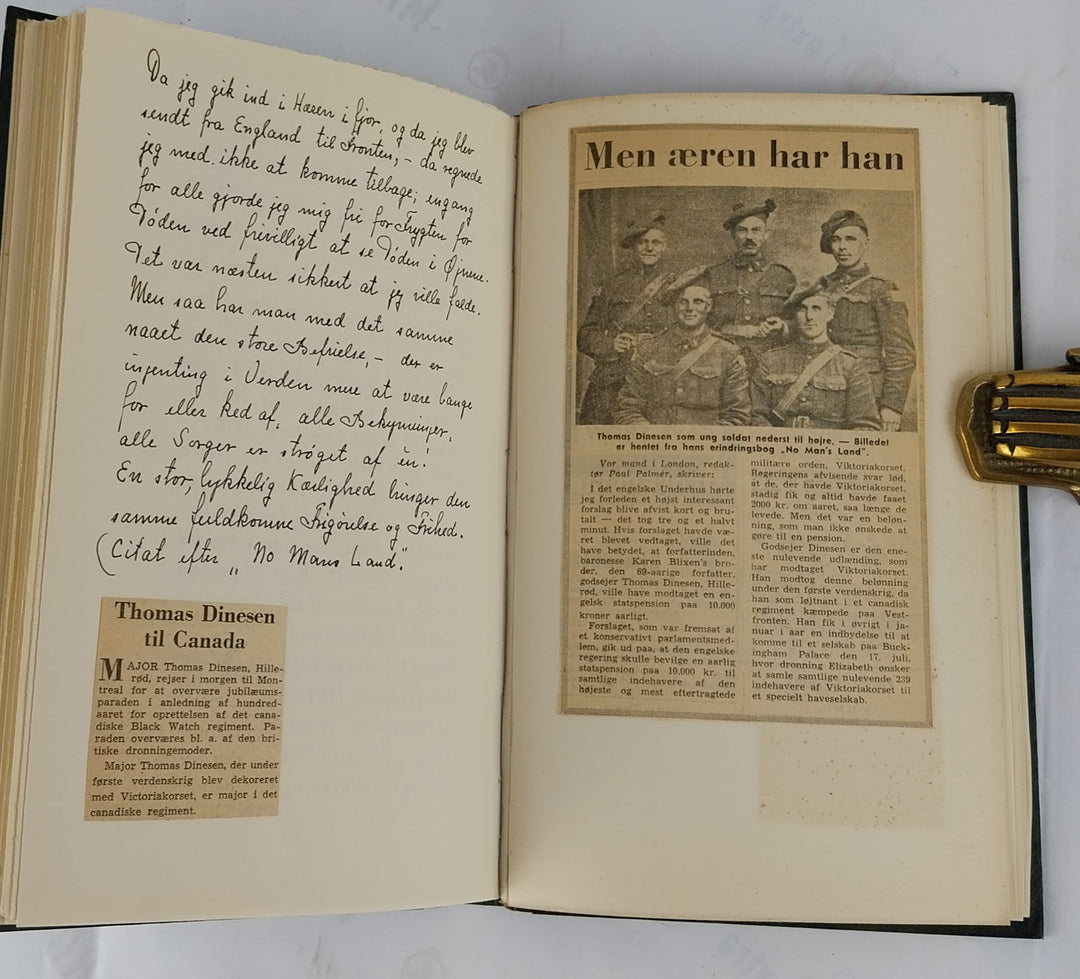 Da jeg gik ind i Hæren i fjor, og da jeg blev
sendt fra England til Fronten, – da regnede
jeg med ikke at komme tilbage; engang
for alle gjorde jeg mig fri for Frygten for
Døden ved frivilligt at se Døden i Øjnene.
Det var næsten sikkert at jeg ville falde.
Men saa har man med det samme
naaet den store Befrielse, – der er
ingenting i Verden mere at være bange
for eller ked af, alle Bekymringer,
alle Sorger er strøget af èn!
En stor, lykkelig Kærlighed bringer den
samme fuldkomne Frigørelse og Frihed.
(Citat efter „No Mans Land."
Thomas Dinesen
til Canada
MAJOR Thomas Dinesen, Hille-
rød, rejser i morgen til Mon-
treal for at overvære jubilæums-
paraden i anledning af hundred-
aaret for oprettelsen af det cana-
diske Black Watch regiment. Pa-
raden overværes bl. a. af den bri-
tiske dronningemoder.
Major Thomas Dinesen, der under
første verdenskrig blev dekoreret
med Victoriakorset, er major i det
canadiske regiment.
Men æren har han
Thomas Dinesen som ung soldat nederst til højre. — Billedet
er hentet fra hans erindringsbog „No Man's Land".
Vor mand i London, redak-
tør Paul Palmér, skriver:
I det engelske Underhus hørte
jeg forleden et højst interessant
forslag blive afvist kort og bru-
talt — det tog tre og et halvt
minut. Hvis forslaget havde væ-
ret blevet vedtaget, ville det
have betydet, at forfatterinden,
baronesse Karen Blixen's bro-
der, den 69-aarige forfatter,
godsejer Thomas Dinesen, Hille-
rød, ville have modtaget en en-
gelsk statspension paa 10.000
kroner aarligt.
Forslaget, som var fremsat af
et konservativt parlamentsmed-
lem, gik ud paa, at den engelske
regering skulle bevilge en aarlig
statspension paa 10.000 kr. til
samtlige indehavere af den
højeste og mest eftertragtede
militære orden, Viktoriakorset.
Regeringens afvisende svar lød,
at de, der havde Viktoriakorset,
stadig fik og altid havde faaet
2000 kr. om aaret, saa længe de
levede. Men det var en beløn-
ning, som man ikke ønskede at
gøre til en pension.
Godsejer Dinesen er den ene-
ste nulevende udlænding, som
har modtaget Viktoriakorset.
Han modtog denne belønning
under den første verdenskrig, da
han som løjtnant i et canadisk
regiment kæmpede paa Vest-
fronten. Han fik i øvrigt i ja-
nuar i aar en indbydelse til at
komme til et selskab paa Buck-
ingham Palace den 17. juli,
hvor dronning Elizabeth ønsker
at samle samtlige nulevende 239
indehavere af Viktoriakorset til
et specielt haveselskab.